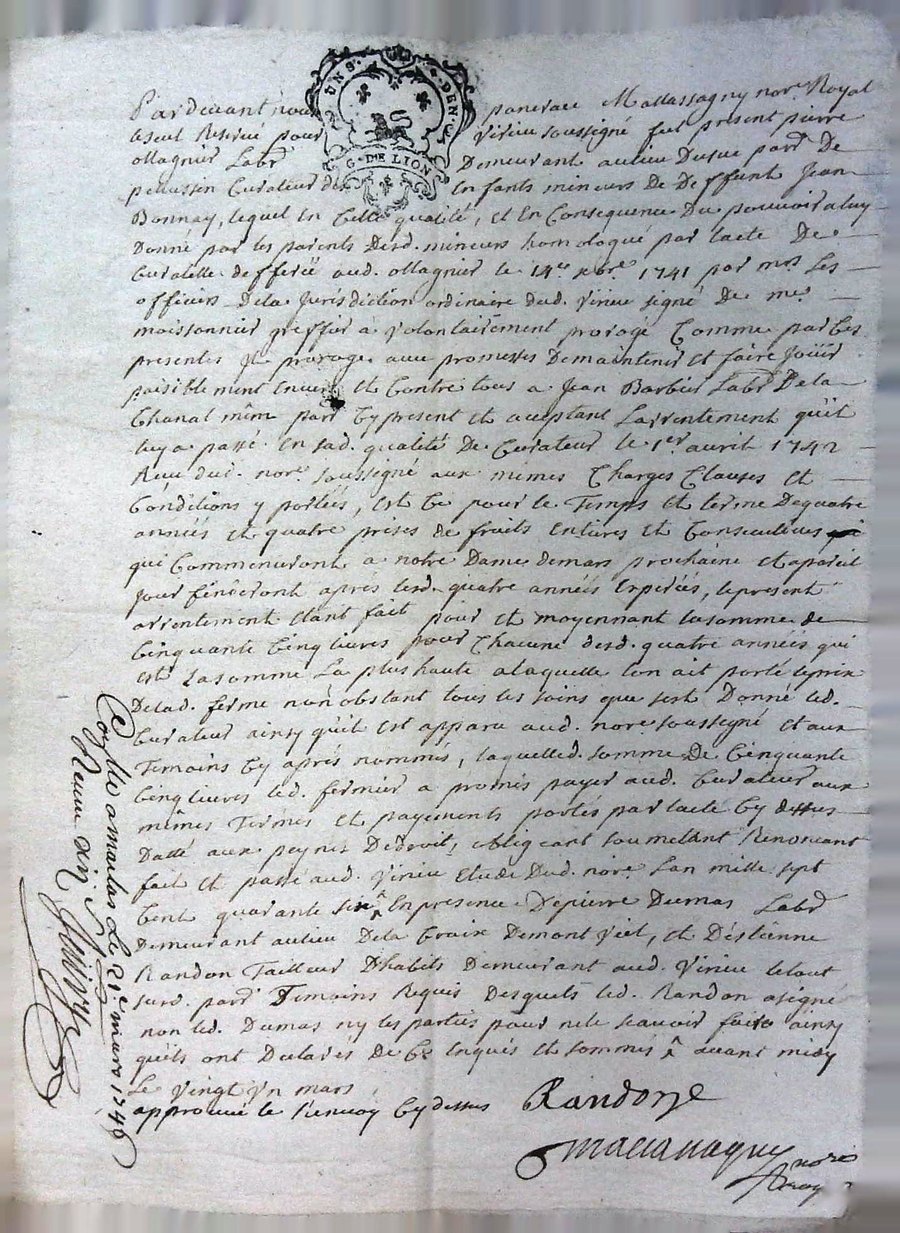 UN S. DEN. 6
G. DE LION
Pardevant nous panerace Mallassagny nore. Royal
a seul Reservé pour Virieu soussigné fut present pierre
ollagnier Labr. Demeurant au lieu Dusue parr. De
pelussin Curateur des Enfants mineurs De Deffunt Jean
Bonnay, lequel En Cette qualité, Et En Consequence Du pouvoir a luy
Donné par les parents Desd. mineurs homologué par lacte De
Curatelle defferée aud. ollagnier le 14e xbre. 1741 par mrs. Les
officiers Dela Jurisdiction ordinaire dud. Virieu signé De me.
moissonnier greffier à Volontairement prorogé Comme par Ces
presentes Il proroge aux promesses De maintenir et faire Joüir
paisiblement Envers Et Contre tous a Jean Barbier Labr. Dela
Chanal mêm parr. Cy present Et acceptant Larrentement quil
luy a passé En sad. qualité De Curateur le 1er. avril 1742
Receu dud. nore. soussigné aux mêmes Charges Clauses Et
Conditions y portées, Est Ce pour le Temps Et terme De quatre
années Et quatre prises de fruits Entieres Et Consecutives
qui Commenceront a notre Dame de mars prochaine Et a pareil
Jour finiront après lesd. quatre années Expirées, le present
arrentement Etant fait pour Et moyennant la somme de
Cinquante Cinq livres pour Chacune desd. quatre années qui
Est La somme La plus haute a laquelle lon ait porté le prix
Delad. ferme nonobstant tous les soins que sest Donné led.
Curateur ainsy quil est apparu aud. nore. soussigné Et aux
Temoins Cy après nommés, laquelle d. somme De Cinquante
Cinq livres led. fermier a promis payer aud. Curateur aux
mêmes Termes Et payements portés par lacte Cy dessus
Datté aux peynes De droit, obligeant soumettant Renonceant
fait Et passé aud. Virieu Etude Dud. nore. Lan mille sept
Cent quarante six ^ En presence De pierre Dumas Labr.
Demeurant au lieu De la Croix De mont Viel, Et D'Estienne
Randon Tailleur D'habits Demeurant aud. Virieu le tout
surd. parr. Temoins Requis Desquels led. Randon a signé
non led. Dumas ny les parties pour ne le scavoir faire ainsy
quils ont Declarés De Ce Enquis Et sommés ^ avant midy
Le Vingt Un mars
approuvé le renvoy Cy dessus Randon
nore.
Roy.
Collé a maclas Le 31e mars 1746
Receu six